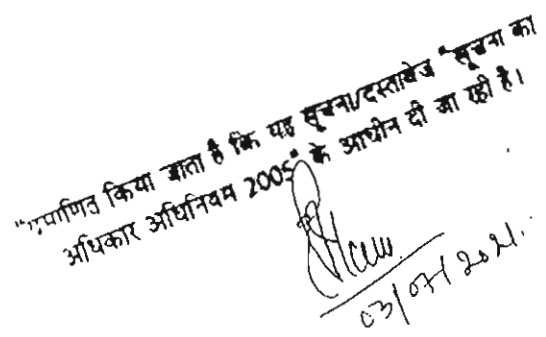 "प्रमाणित किया जाता है कि यह सूचना/दस्तावेज "सूचना का
अधिकार अधिनियम 2005" के आधीन दी जा रही है।
03/07/2021